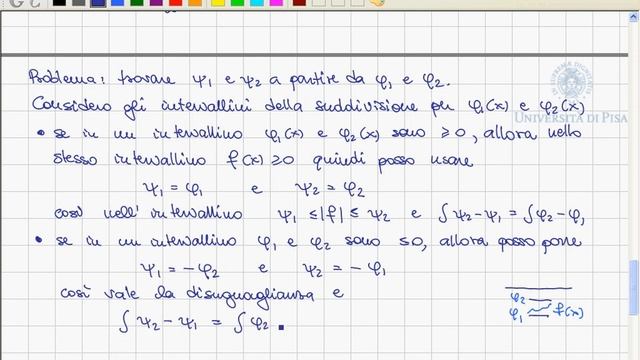 Problema: trovare ψ₁ e ψ₂ a partire da φ₁ e φ₂.
Considero gli intervallini della suddivisione per φ₁(x) e φ₂(x)
UNIVERSITÀ DI PISA
• se in un intervallino φ₁(x) e φ₂(x) sono ≥0, allora nello
stesso intervallino f(x)≥0 quindi posso usare
ψ₁ = φ₁ e ψ₂ = φ₂
così nell'intervallino ψ₁ ≤|f| ≤ ψ₂ e ∫ψ₂-ψ₁ = ∫φ₂-φ₁
• se in un intervallino φ₁ e φ₂ sono ≤0, allora posso porre
ψ₁ = -φ₂ e ψ₂ = -φ₁
così vale la disuguaglianza e
φ₂
φ₁ f(x)
∫ψ₂-ψ₁ = ∫φ₂